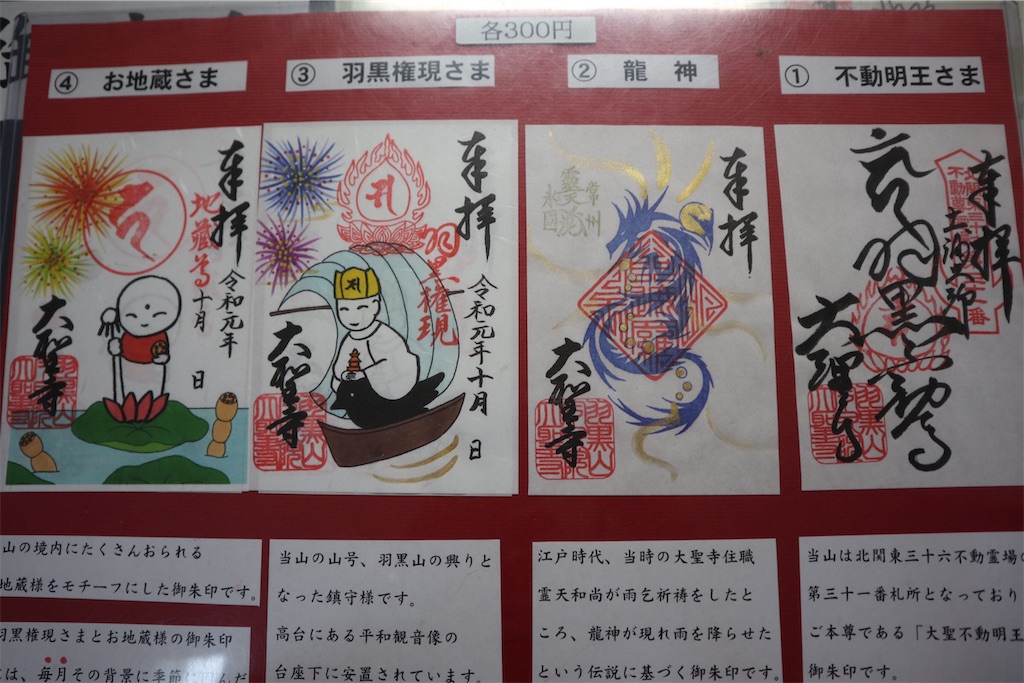 各300円
① 不動明王さま
② 龍神
③ 羽黒権現さま
④ お地蔵さま
奉拝
大聖寺
奉拝
常州
永国
大聖寺
奉拝
羽黒権現
令和元年十月 日
大聖寺
奉拝
地蔵尊
令和元年
十月 日
大聖寺
当山は北関東三十六不動霊場の
第三十一番札所となっており
ご本尊である「大聖不動明王
御朱印です。
江戸時代、当時の大聖寺住職
霊天和尚が雨乞祈祷をしたと
ころ、龍神が現れ雨を降らせた
という伝説に基づく御朱印です。
当山の山号、羽黒山の興りと
なった鎮守様です。
高台にある平和観音像の
台座下に安置されています。
山の境内にたくさんおられる
地蔵様をモチーフにした御朱印です。
羽黒権現さまとお地蔵様の御朱印
は、毎月その背景に季節